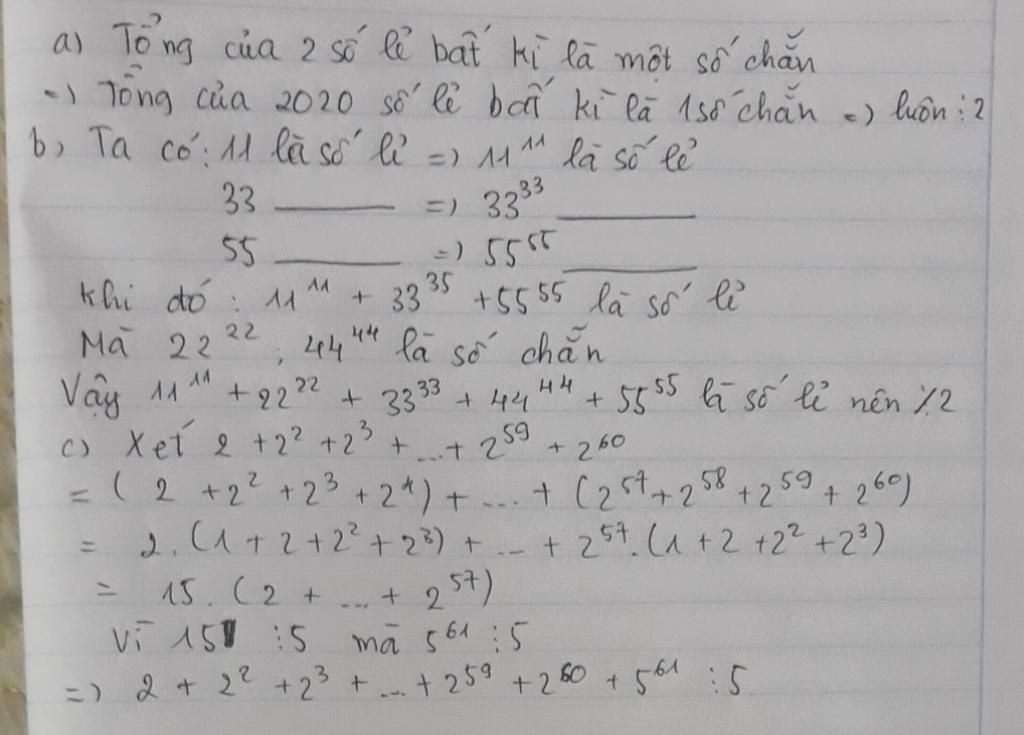 a) Tổng của 2 số lẻ bất kì là một số chẵn
=) Tổng của 2020 số lẻ bất kì là 1 số chẵn =) luôn ⋮ 2
b) Ta có: 11 là số lẻ =) 11¹¹ là số lẻ
33 ——— =) 33³³ ———
55 ——— =) 55⁵⁵ ———
Khi đó : 11¹¹ + 33³⁵ + 55⁵⁵ là số lẻ
Mà 22²², 44⁴⁴ là số chẵn
Vậy 11¹¹ + 22²² + 33³³ + 44⁴⁴ + 55⁵⁵ là số lẻ nên ⋮̸ 2
c) Xét 2 + 2² + 2³ + ... + 2⁵⁹ + 2⁶⁰
= ( 2 + 2² + 2³ + 2⁴) + ... + (2⁵⁷ + 2⁵⁸ + 2⁵⁹ + 2⁶⁰)
= 2. (1 + 2 + 2² + 2³) + ... + 2⁵⁷. (1 + 2 + 2² + 2³)
= 15. (2 + ... + 2⁵⁷)
Vì 15 ⋮ 5 mà 5⁶¹ ⋮ 5
=) 2 + 2² + 2³ + ... + 2⁵⁹ + 2⁶⁰ + 5⁶¹ ⋮ 5